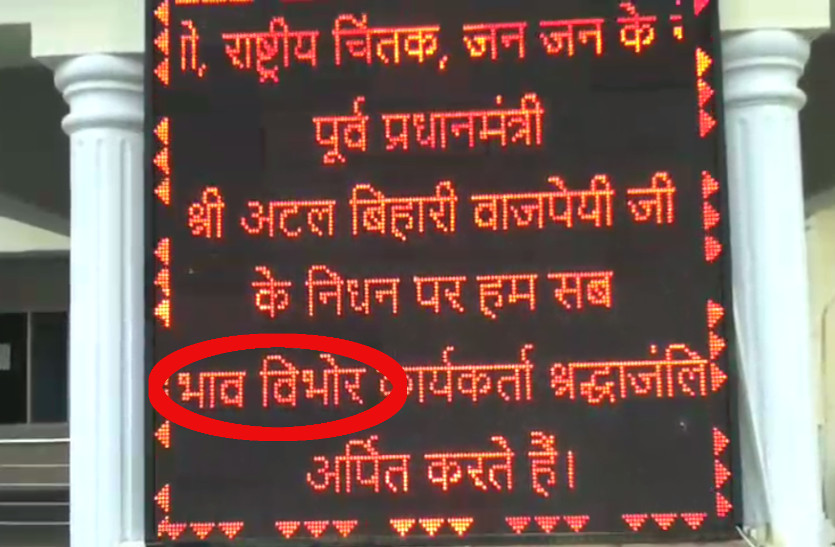 राष्ट्रीय चिंतक, जन जन के
पूर्व प्रधानमंत्री
श्री अटल बिहारी वाजपेयी जी
के निधन पर हम सब
भाव विभोर कार्यकर्ता श्रद्धाजंलि
अर्पित करते हैं।